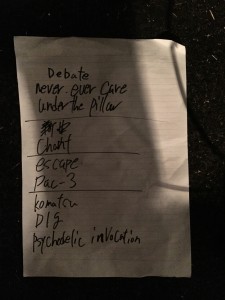 Debate
never ever care
under the pillow
Chant
escape
Pac-3
komatsu
DIG
psychedelic invocation